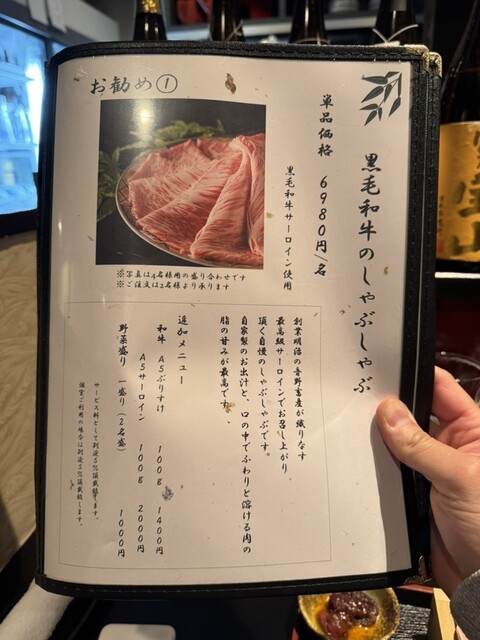 お勧め①
黒毛和牛のしゃぶしゃぶ
単品価格 6980円/名
黒毛和牛サーロイン使用
※写真は4名様用の盛り合わせです
※ご注文は2名様より承ります
創業明治の吾野畜産が織りなす
最高級サーロインでお召し上がり
頂く自慢のしゃぶしゃぶです。
自家製のお出汁と、口の中でふわりと溶ける肉の
脂の甘みが最高です。
追加メニュー
和牛 A5ぶりすけ 100g 1400円
A5サーロイン 100g 2000円
野菜盛り 一盛り(2名盛) 1000円
サービス料として別途5%頂戴致します。
個室ご利用の場合は別途5%頂戴致します。